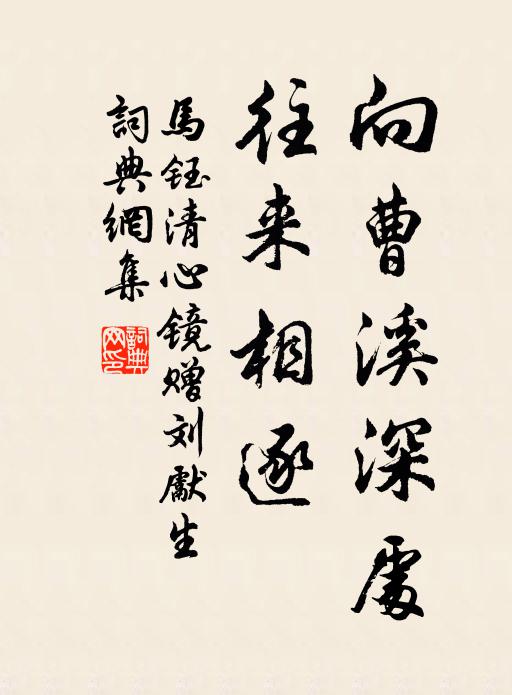 向曹溪深處
往来相逐
馬鈺清心镜赠刘獻生
詞典網集
詞典網印